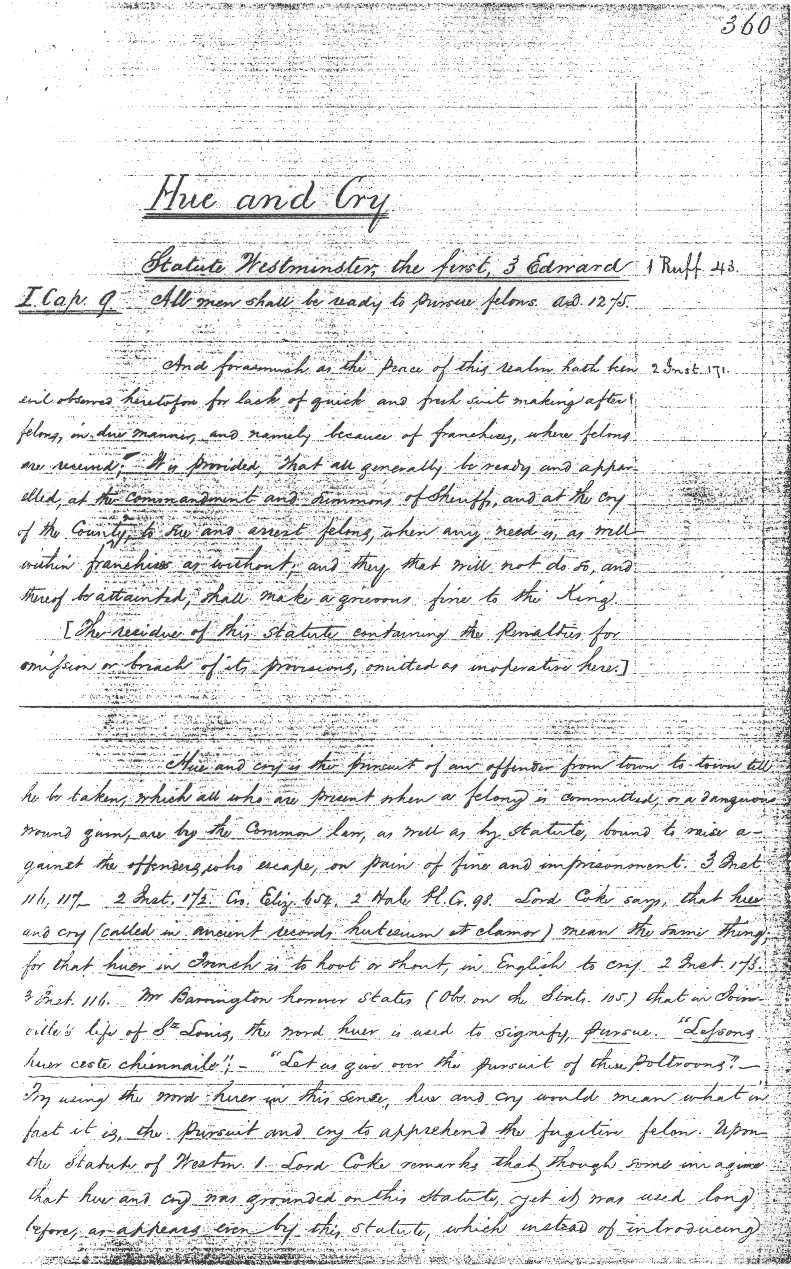 360
Hue and Cry
Statute Westminster, the first, 3 Edward 1 Ruff. 43.
I. Cap. 9. All men shall be ready to pursue felons. A.D. 1275.
And forasmuch as the Peace of this realm hath been 2 Inst. 171.
evil observed heretofore for lack of quick and fresh suit making after
felons, in due manner, and namely because of franchises, where felons
are received; It is provided, That all generally be ready and appar-
elled, at the commandment and summons of Sheriffs, and at the cry
of the County, to sue and arrest felons, when any need is, as well
within franchises as without; and they that will not do so, and
thereof be attainted, shall make a grievous fine to the King.
[The residue of this statute containing the Penalties for
omission or breach of its provisions, omitted as inoperative here.]
Hue and cry is the pursuit of an offender from town to town till
he be taken, which all who are present when a felony is committed, or a dangerous
wound given, are by the Common law, as well as by statute, bound to raise a-
gainst the offenders who escape, on pain of fine and imprisonment. 3 Inst.
116, 117_ 2 Inst. 172. Cro. Eliz. 654. 2 Hale Pl. Cr. 98. Lord Coke says, that hue
and cry (called in ancient records hutesium et clamor) mean the same thing,
for that huer in French is to hoot or shout, in English to cry. 2 Inst. 173.
3 Inst. 116. Mr Barrington however states (Obs. on the Stats. 105.) that in Join-
ville's life of St Louis, the word huer is used to signify, pursue. "Lessons
huer ceste chiennaile"; - "Let us give over the pursuit of these Poltroons." —
In using the word huer in this sense, hue and cry would mean what in
fact it is, the pursuit and cry to apprehend the fugitive felon. Upon
the Statute of Westm. 1. Lord Coke remarks that though some imagine
that hue and cry was grounded on this statute, yet it was used long
before, as appears even by this statute, which instead of introducing